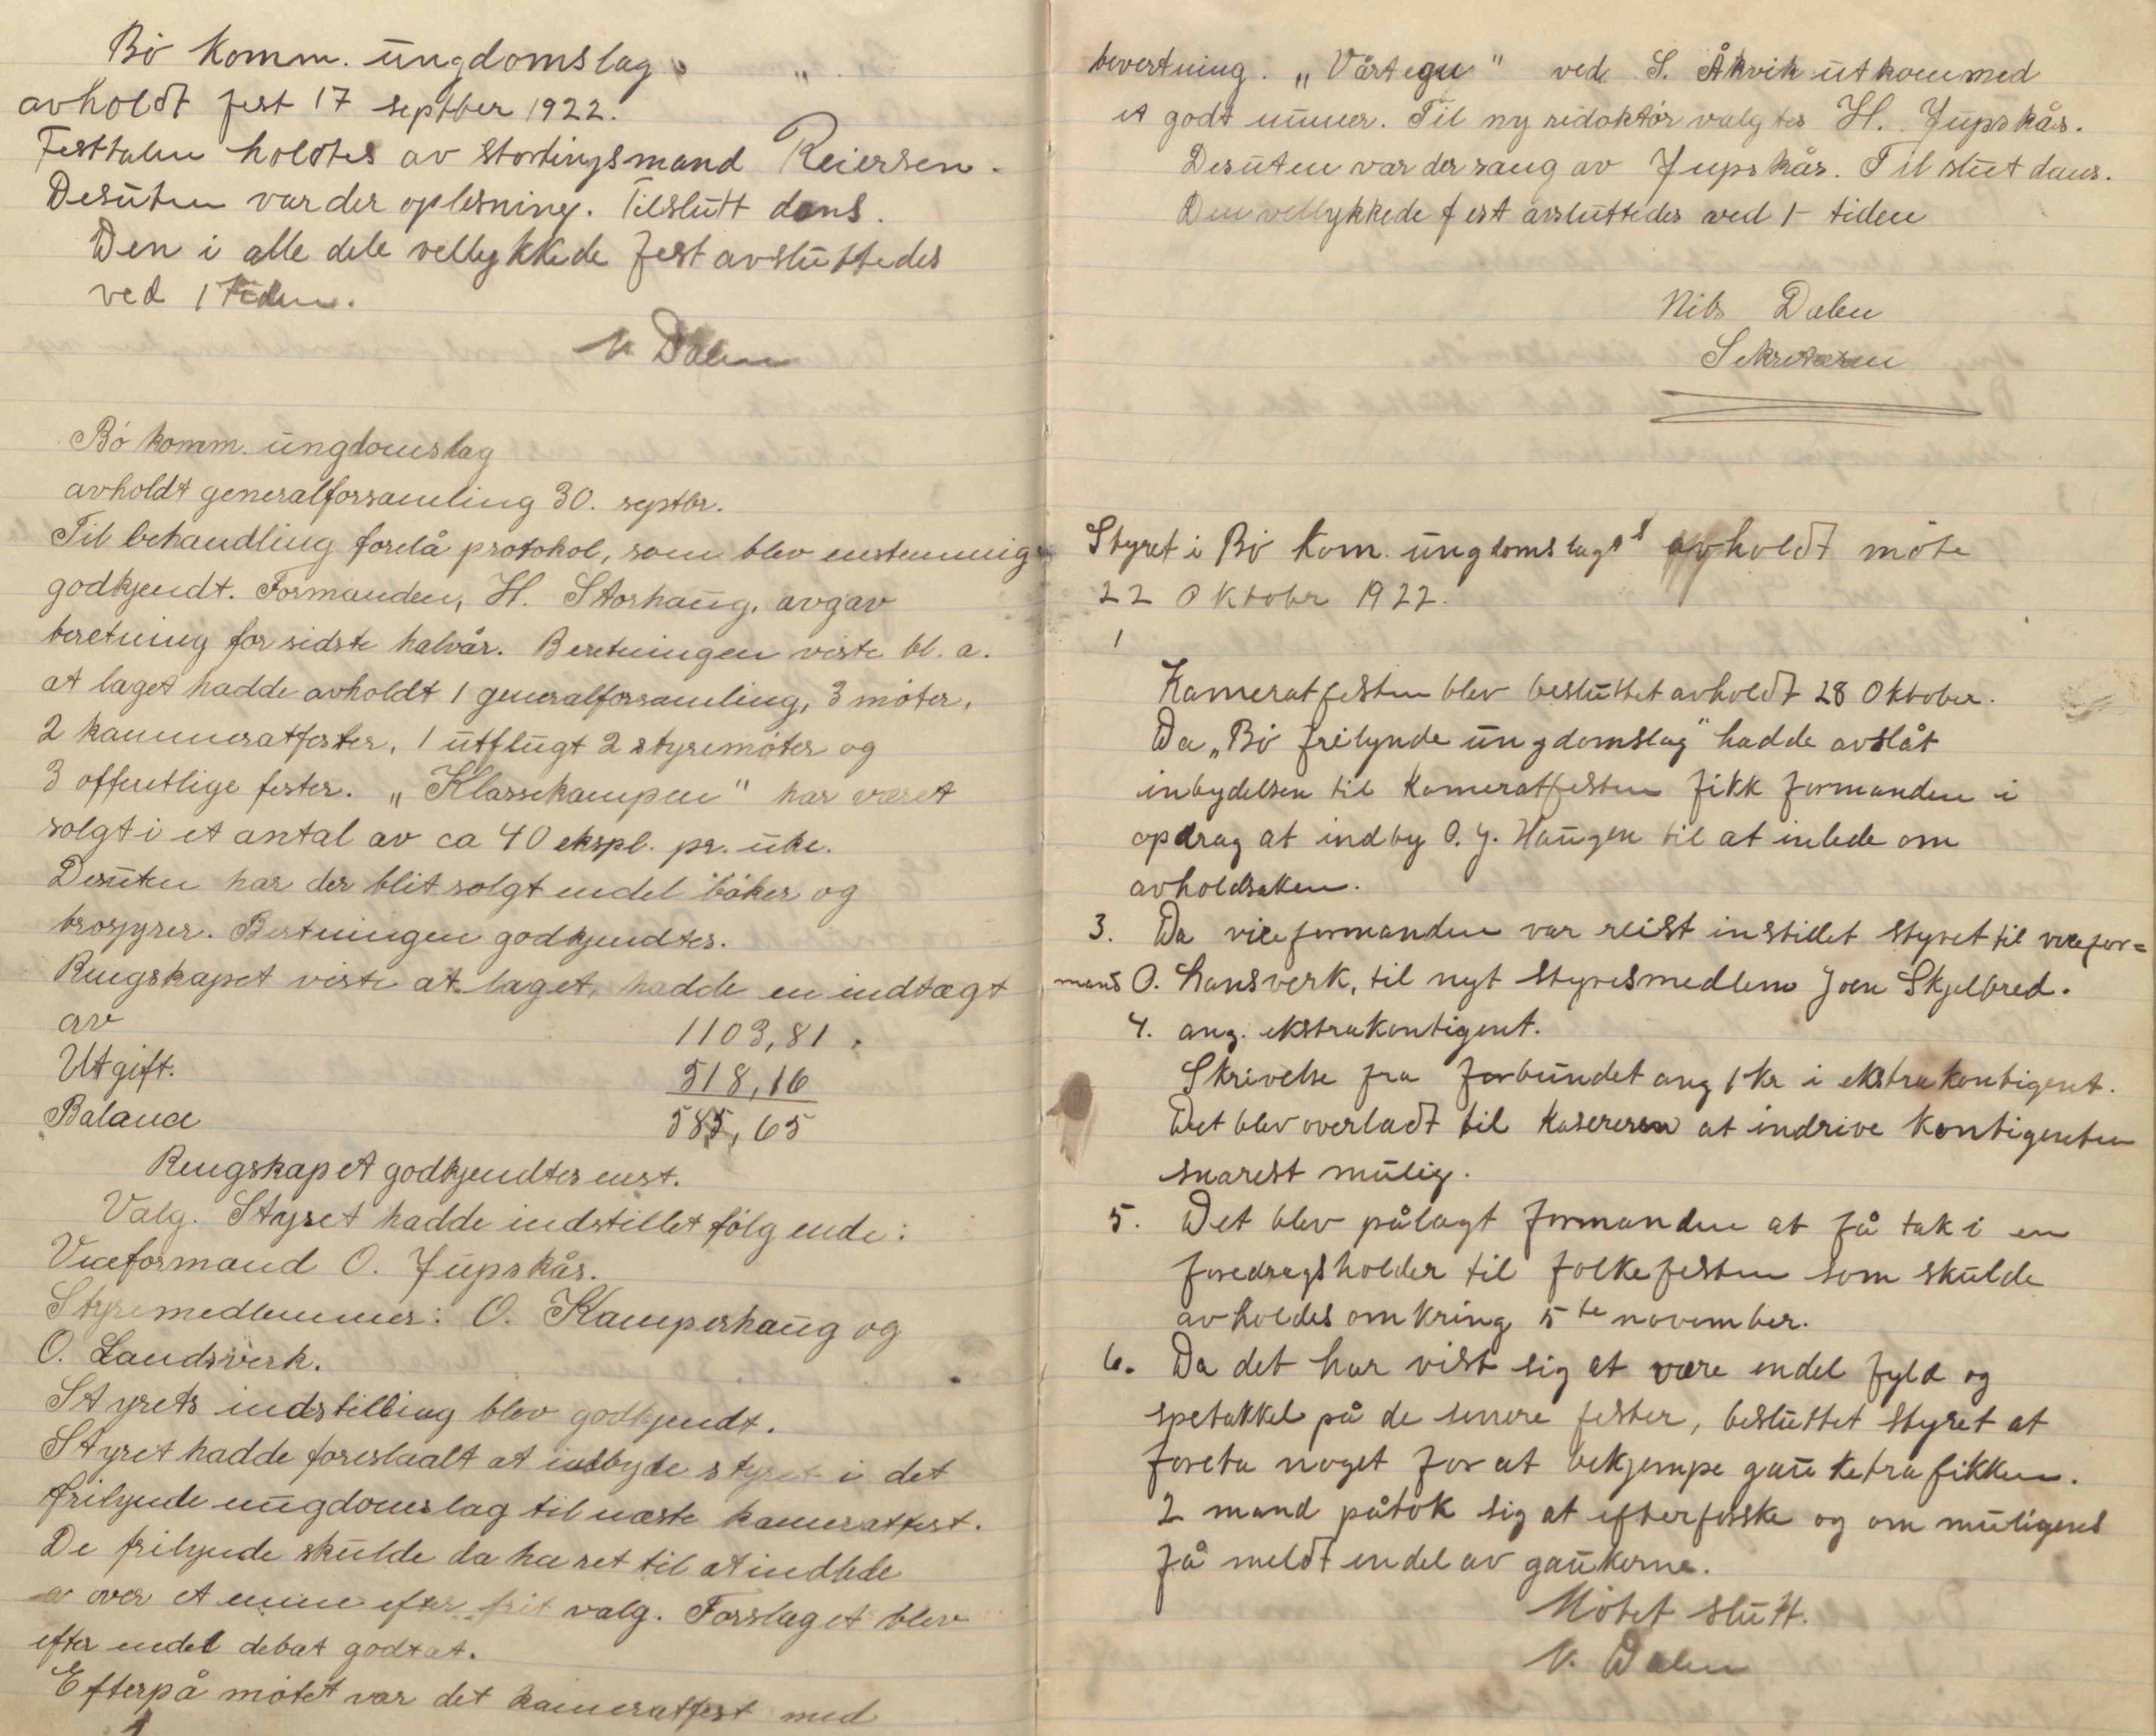 Bö Komm. ungdomslag.
avholdt fest 17 septber 1922.
Festtalen holdtes av stortingsmand Reiersen.
Desuten var der oplesning. Tilslutt dans.
Den i alle dele vellykkede fest avsluttedes
ved 1 tiden.
N. Dalen
Bö komm. ungdomslag
avholdt generalforsamling 30. septbr.
Til behandling forelå protokol, som blev enstemmig
godkjendt. Formanden, H. Storhaug, avgav
beretning for sidste halvår. Beretningen viste bl. a.
at laget hadde avholdt 1 generalforsamling, 3 möter,
2 kammeratfester, 1 utflugt 2 styremöter og
3 offentlige fester. „Klassekampen" har været
solgt i et antal av ca 40 ekspl. pr. uke.
Desuten har der blit solgt endel böker og
brosjyrer. Beretningen godkjendtes.
Rengskapet viste at laget hadde en indtægt
av 1103,81.
Utgift. 518,16
Balance 585,65
Rengskapet godkjendtes enst.
Valg. Styret hadde indstillet fölgende:
Viceformand O. Jupskås.
Styremedlemmer: O. Kamperhaug og
O. Landsverk.
Styrets indstilling blev godkjendt.
Styret hadde foreslaalt at indbyde styret i det
frilynde ungdomslag til næste kameratfest.
De frilynde skulde da ha ret til at indlede
over et emne efter frit valg. Forslaget blev
efter endel debat godtat.
Efterpå mötet var det kameratfest med
bevertning. „Vårtegn" ved S. Åkvik utkom med
et godt numer. Til ny redaktör valgtes H. Jupskås.
Desuten var der sang av Jupskås. Til slut dans.
Den vellykkede fest avsluttedes ved 1- tiden
Nils Dalen
Sekretæren
Styret i Bö Kom. ungdomslags avholdt möte
22 Oktobr 1922.
1
Kameratfesten blev besluttet avholdt 28 Oktober.
Da „Bö frilynde ungdomslag" hadde avslåt
inbydelsen til kameratfesten fikk formanden i
opdrag at indby O. J. Haugen til at inlede om
avholdsaken.
3. Da viceformanden var reist instillet styret til vicefor=
mans O. Lansverk, til nyt styresmedlem Joen Skjelbred.
4. ang. ekstrakontigent.
Skrivelse fra forbundet ang 1 kr i ekstrakontigent.
Det blev overladt til kasereren at indrive kontigenten
snarest mulig.
5. Det blev pålagt formanden at få tak i en
foredragsholder til folkefesten som skulde
avholdes omkring 5te november.
6. Da det har vist sig at være endel fyld og
spetakkel på de senere fester, besluttet styret at
foreta noget for at bekjempe gauketrafikken.
2 mand påtok sig at efterforske og om muligens
få meldt endel av gaukerne.
Mötet slutt.
N. Dalen